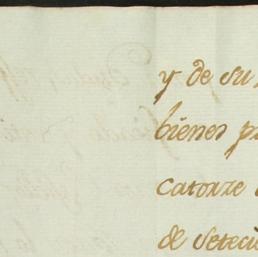 y de su
bienes p
catorze
de seteci